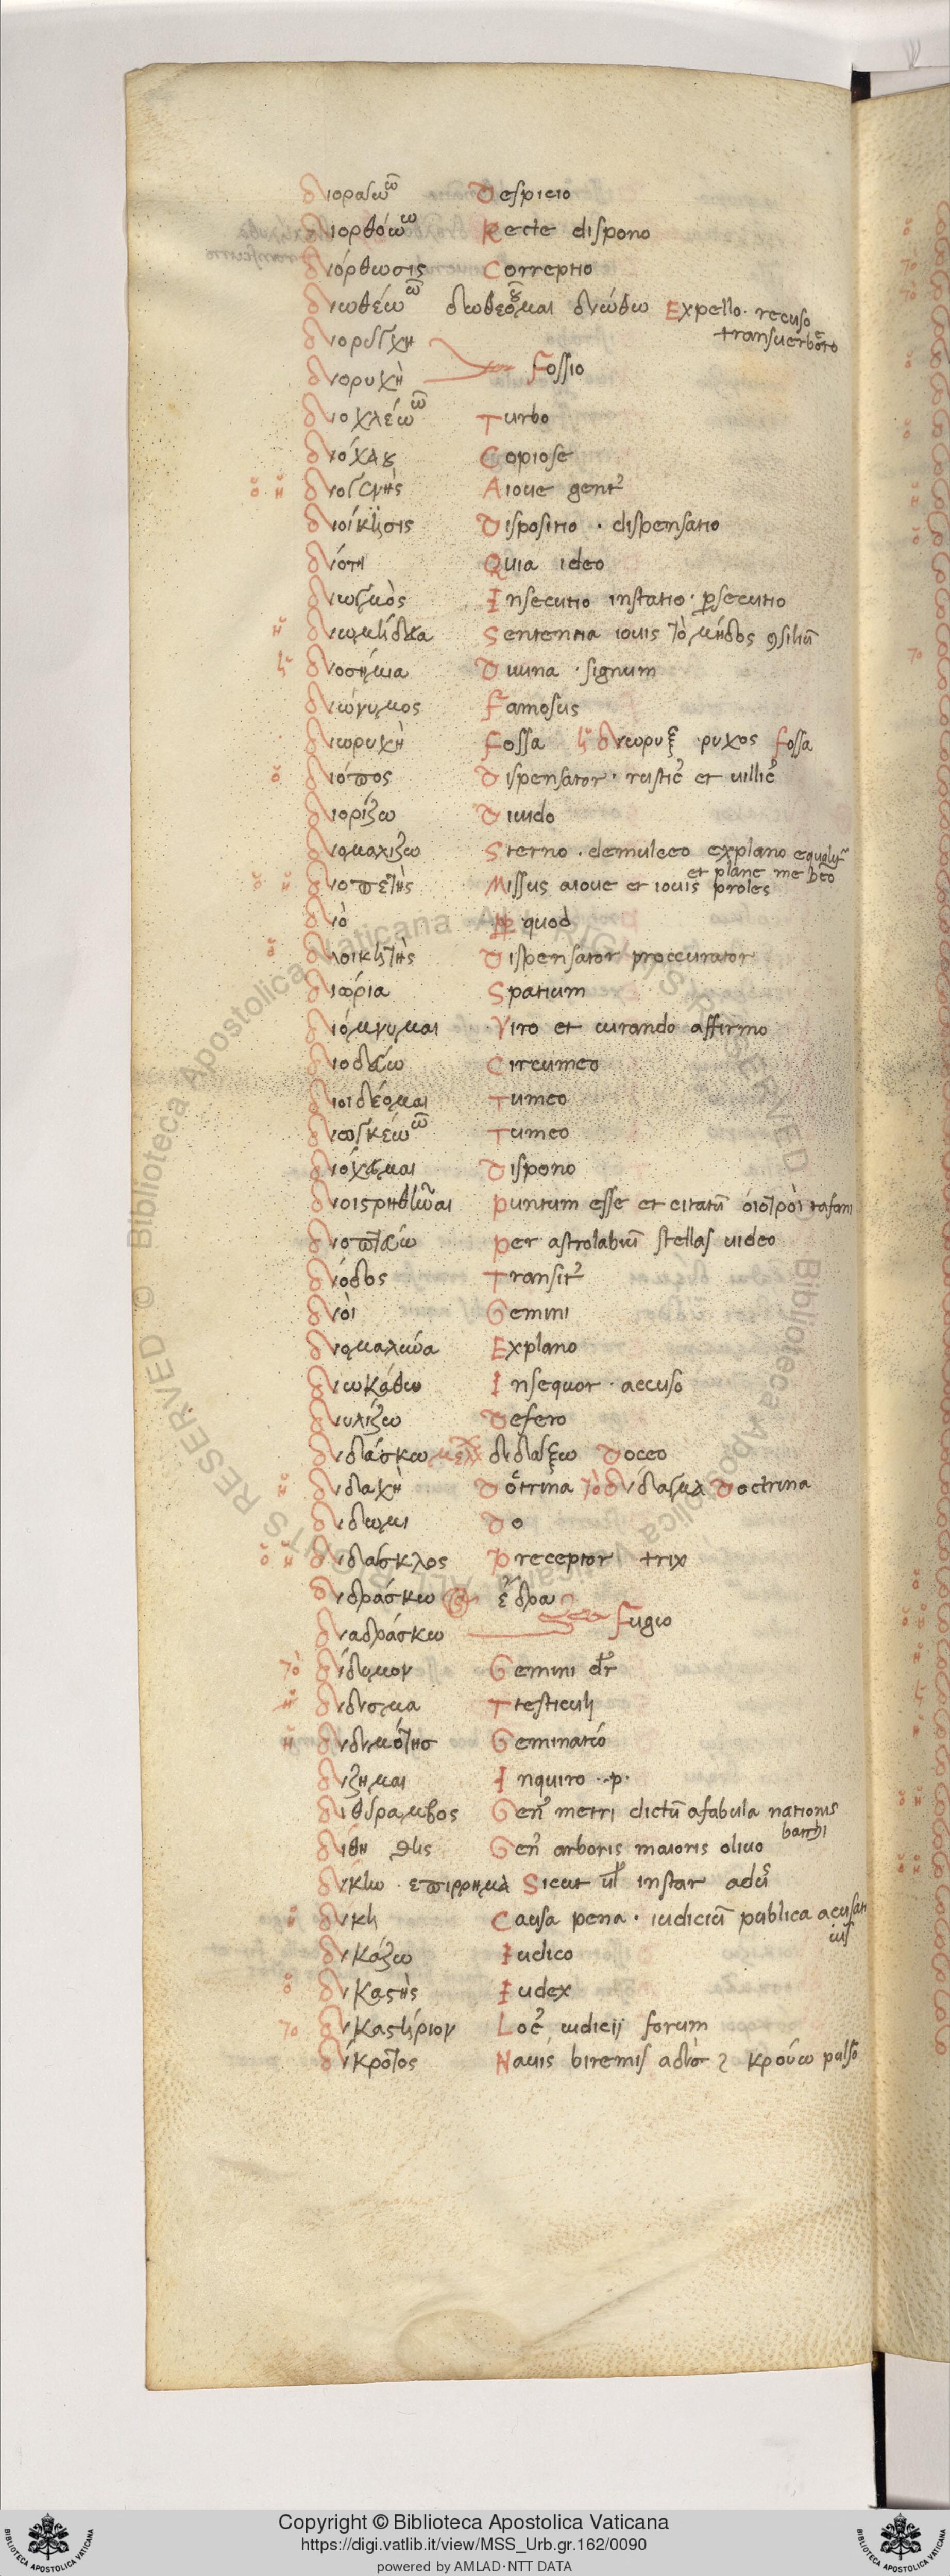 διοράω ῶ Despicio
διορθόω ῶ Recte dispono
διόρθωσις Correptio
διωθέω ῶ διωθεόμαι διώθω Expello · recuso
transuerbero
διορυγὴ
διορυχὴ Fossio
διοχλέω ῶ Turbo
διόχλου Copiose
ὁ ἡ διογενὴς A ioue genit9
διοίκησις Dispositio · dispensatio
διότι Quia ideo
διωγμὸς Insecutio instatio · ꝑsecutio
ἡ διομήδεια Sententia iouis τὸ μῆδος ꝯsiliū
ἡ διοσημια Diuina · signum
διώνυμος Famosus
διωρυχὴ Fossa ἡ διωρυξ · ρυχος fossa
ὁ διόπος Dispensator · rustic9 et uillic9
διορίζω Diuido
διομαλιζω Sterno · demulceo explano equalit͂
et plane me hēo
ὁ ἡ διοπετὴς Missus a ioue et iouis proles
διὸ Ꝓꝑ quod
ὁ διοικητὴς Dispensator proccurator
διορία Spatium
διόμνυμαι Viro et iurando affirmo
διοδεύω Circumeo
διοιδέομαι Tumeo
διογκέω ῶ Tumeo
διοχέομαι Dispono
διοιστρηθῆναι puntum esse et citatū ὀιστροὶ tafani
διοπτεύω per astrolabiū stellas uideo
δίοδος Transit9
διὸι Gemini
διομαλύνω Explano
διωκάθω Insequor · accuso
διυλίζω Defero
διδάσκω μελλ διδάξω Doceo
ἡ διδαχὴ Doctrina τὸ διδαγμα Doctrina
διδωμι Do
ὁ ἡ διδάσκαλος preceptor trix
διδράσκω ἔδραν
διαδράσκω fugio
τὸ δίδυμον Gemini dr̄
διδυμα Ttesticuli
ἡ διδυμότης Geminatio
διζημαι Inquiro · p ·
διθύραμβος Gen9 metri dictū a fabula nationis
bacchi
Gen9 arboris maioris oliuo
δικην · επιρρημα Sicut ul instar adu9
δικη Causa pena · iudiciū publica acusati
ius
δικάζω Iudico
ὁ δικαστὴς Iudex
τὸ δικαστήριον Loc9 iudicij forum
δίκροτος Nauis biremis a δὶς κρούω pulso
Copyright © Biblioteca Apostolica Vaticana
https://digi.vatlib.it/view/MSS_Urb.gr.162/0090
powered by AMLAD·NTT DATA